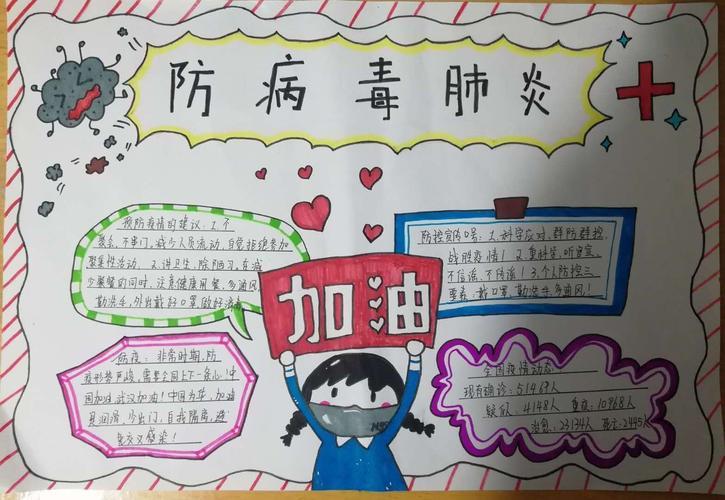 防病毒肺炎
预防疫情的建议：1.不
聚会、不串门，减少人员流动，自觉拒绝参加
聚集性活动。2.讲卫生，除陋习。在减
少聚餐的同时，注意健康用餐，多通风
勤洗手，外出戴好口罩，做好
防控宣传口号：1.科学应对，群防群控，
战胜疫情！2.重科学，听官宣，
不信谣，不传谣！3.个人防控三
要素：戴口罩，勤洗手，多通风！
加油
防疫：非常时期，防
疫形势严峻，需要全国上下一条心！中
国加油！武汉加油！中国力量，加油
见润滑，少出门，自我隔离，避
免交叉感染！
全国疫情动态
现有确诊：51463人
疑似：4148人 重症：10968人
治愈：23134人 死亡：2445人
N95